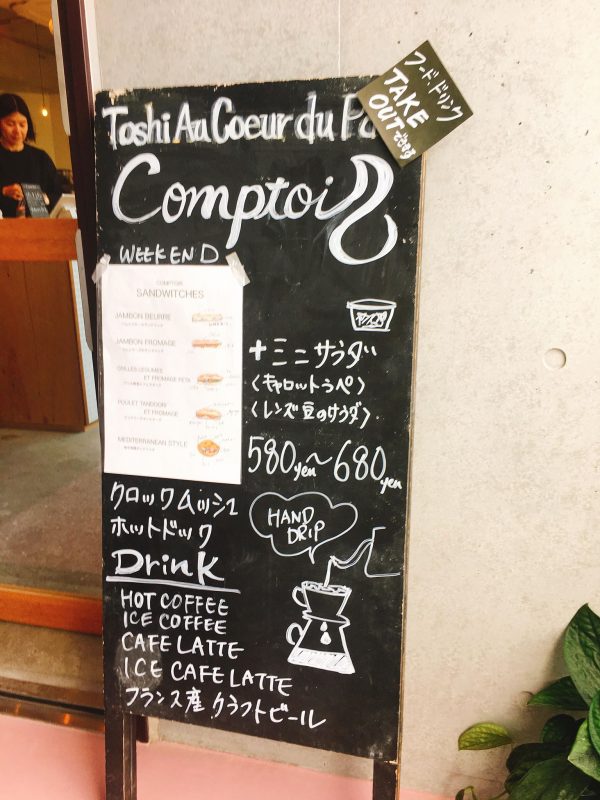 フード、ドリンク
TAKE
OUT できます
Toshi Au Coeur du Pa
Comptoir
WEEKEND
COMPTOIR
SANDWITCHES
JAMBON BEURRE
JAMBON FROMAGE
GRILLES LEGUMES
ET FROMAGE FETA
POULET TANDOORI
ET FROMAGE
MEDITERRANEAN STYLE
+ミニサラダ
〈キャロットラペ〉
〈レンズ豆のサラダ〉
580yen〜680yen
クロックムッシュ
ホットドック
HAND
DRIP
Drink
HOT COFFEE
ICE COFFEE
CAFE LATTE
ICE CAFE LATTE
フランス産 クラフトビール